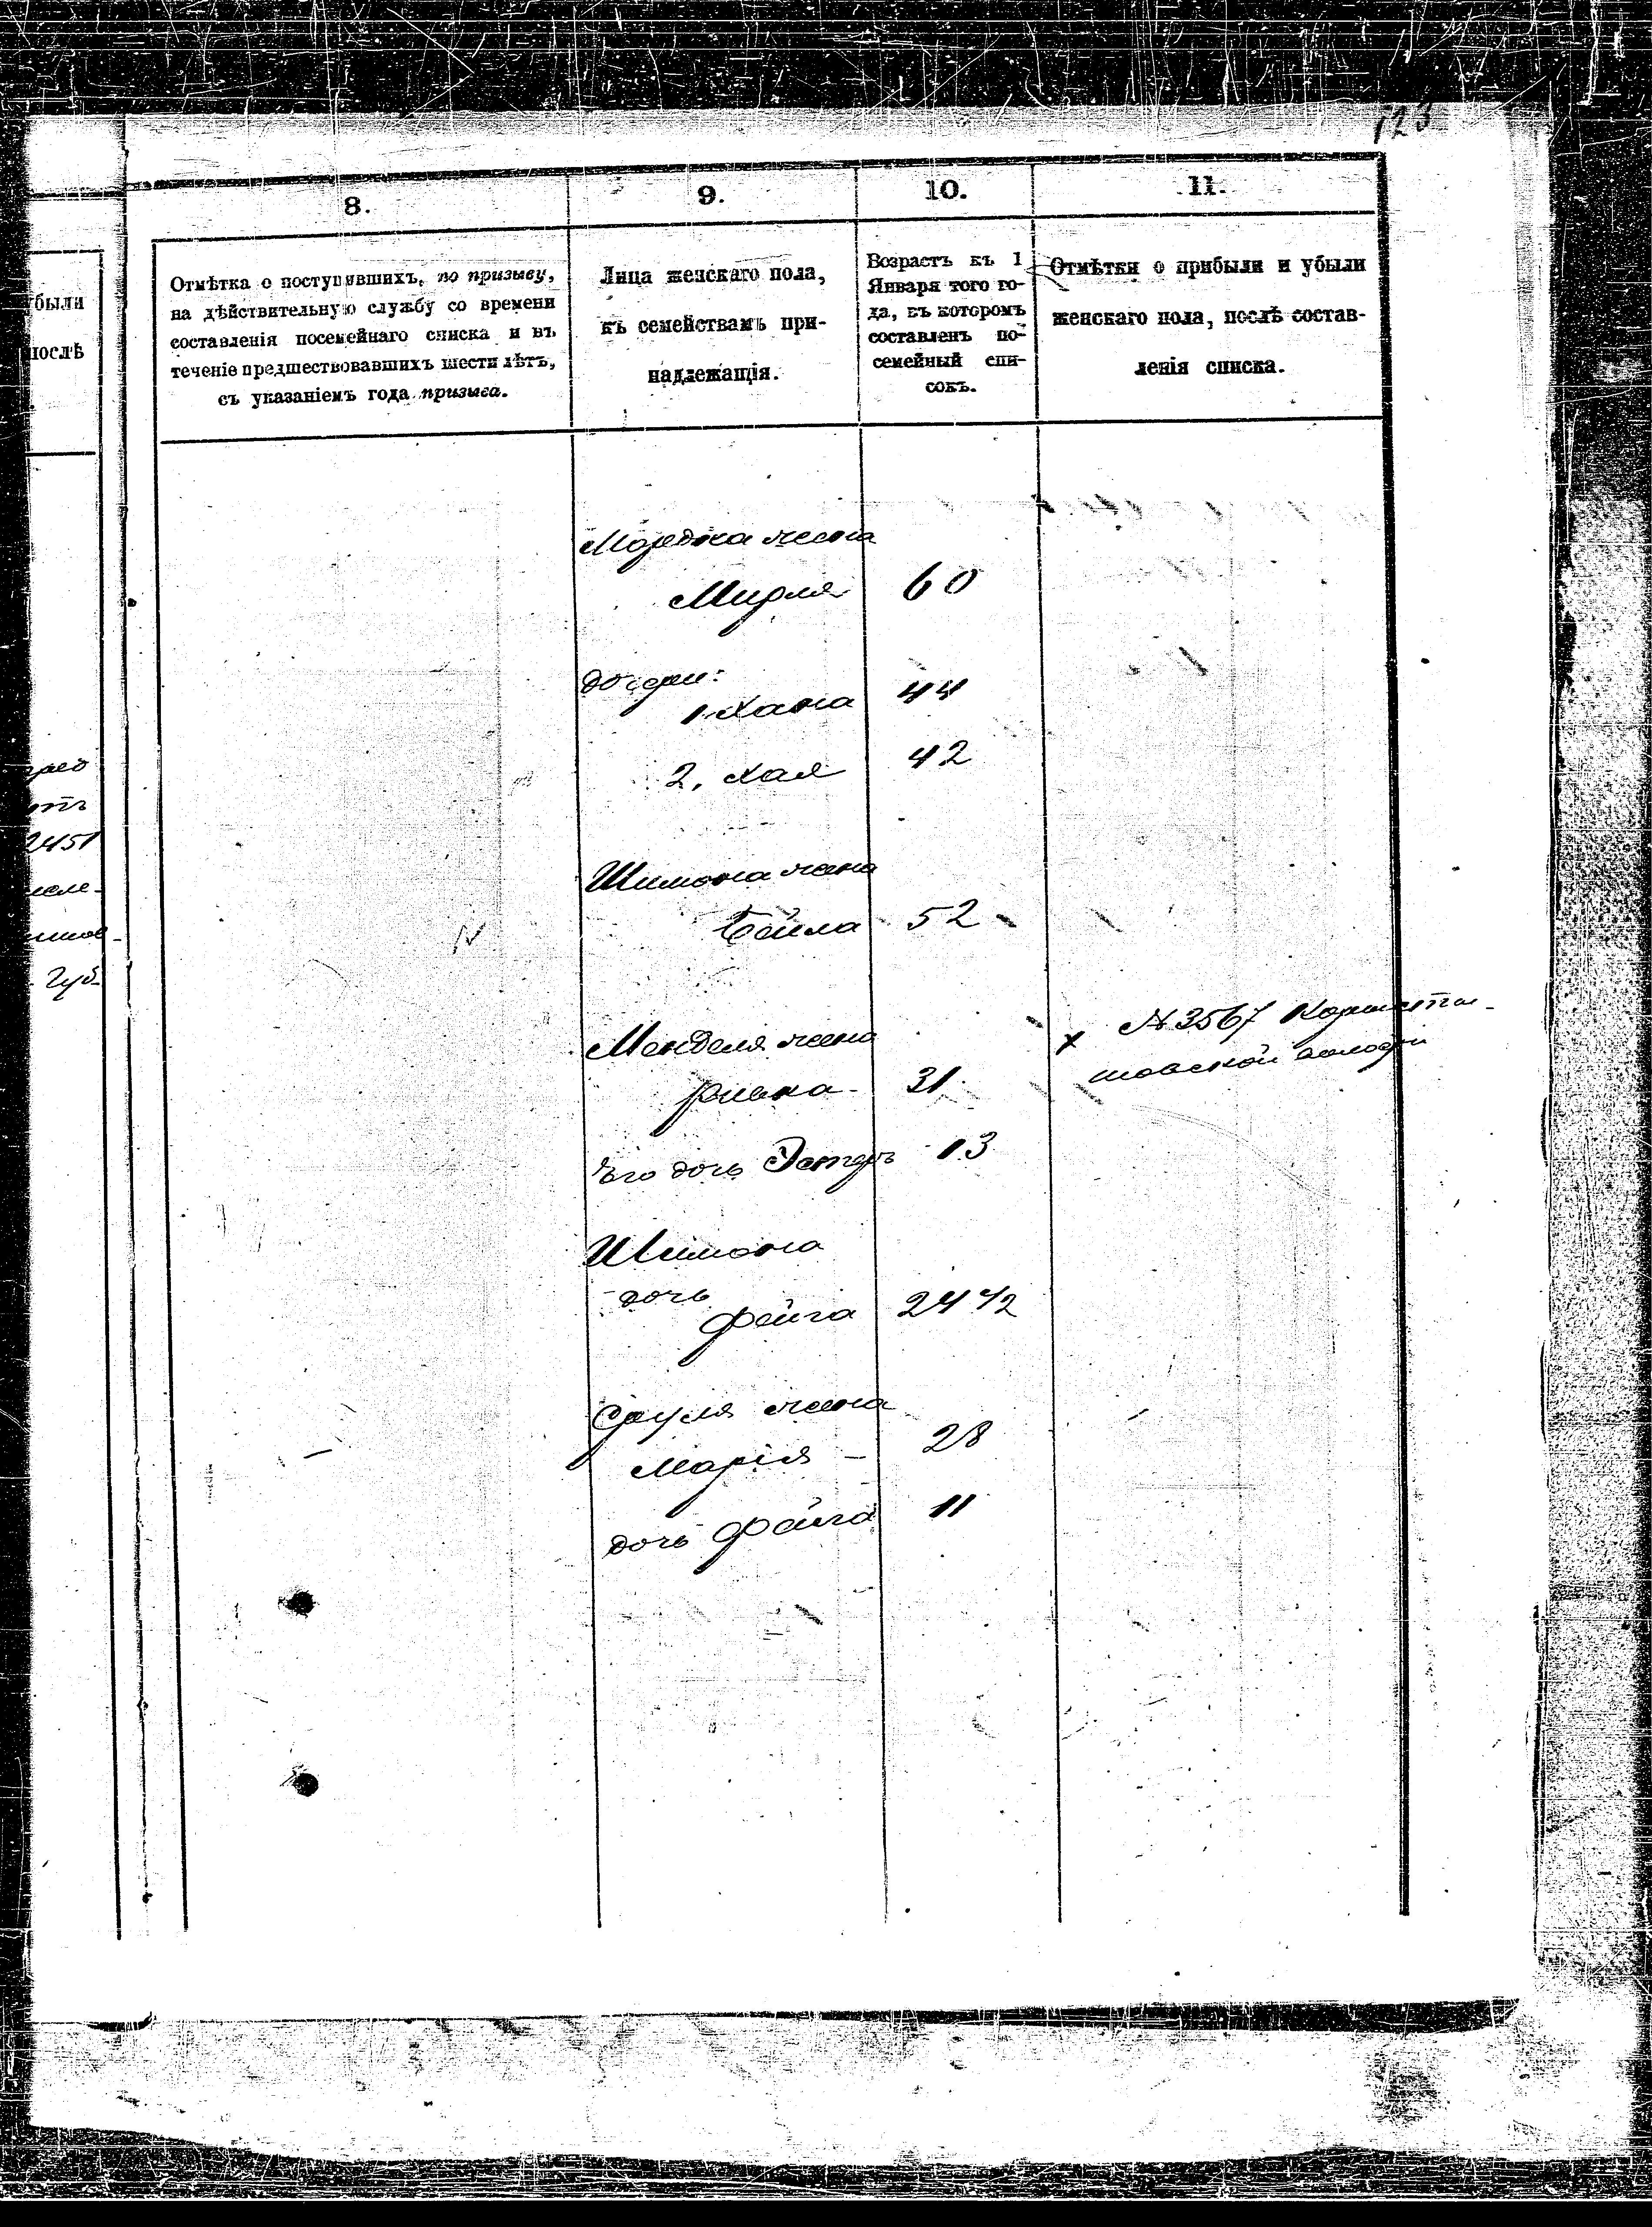 123
были
послѣ
2451
Губ.
8.
Отмѣтка о поступившихъ, по призыву,
на дѣйствительную службу со времени
составленія посемейнаго списка и въ
теченіе предшествовавшихъ шести лѣтъ,
съ указаніемъ года призыва.
9.
Лица женскаго пола,
къ семействамъ при-
надлежащія.
10.
Возрастъ къ 1
Января того го-
да, въ которомъ
составленъ по-
семейный спи-
сокъ.
11.
Отмѣтки о прибыли и убыли
женскаго пола, послѣ состав-
ленія списка.
Мордка жена
Мирля 60
дочери:
1. Хана 44
2. Хая 42
Шимона жена
Бейла 52
Менделя жена
Ривка 31
№ 3567
Его дочь Эстеръ 13
Шимона
дочь
Фейга 24 1/2
Сруля жена
Марія 28
дочь Фейга 11